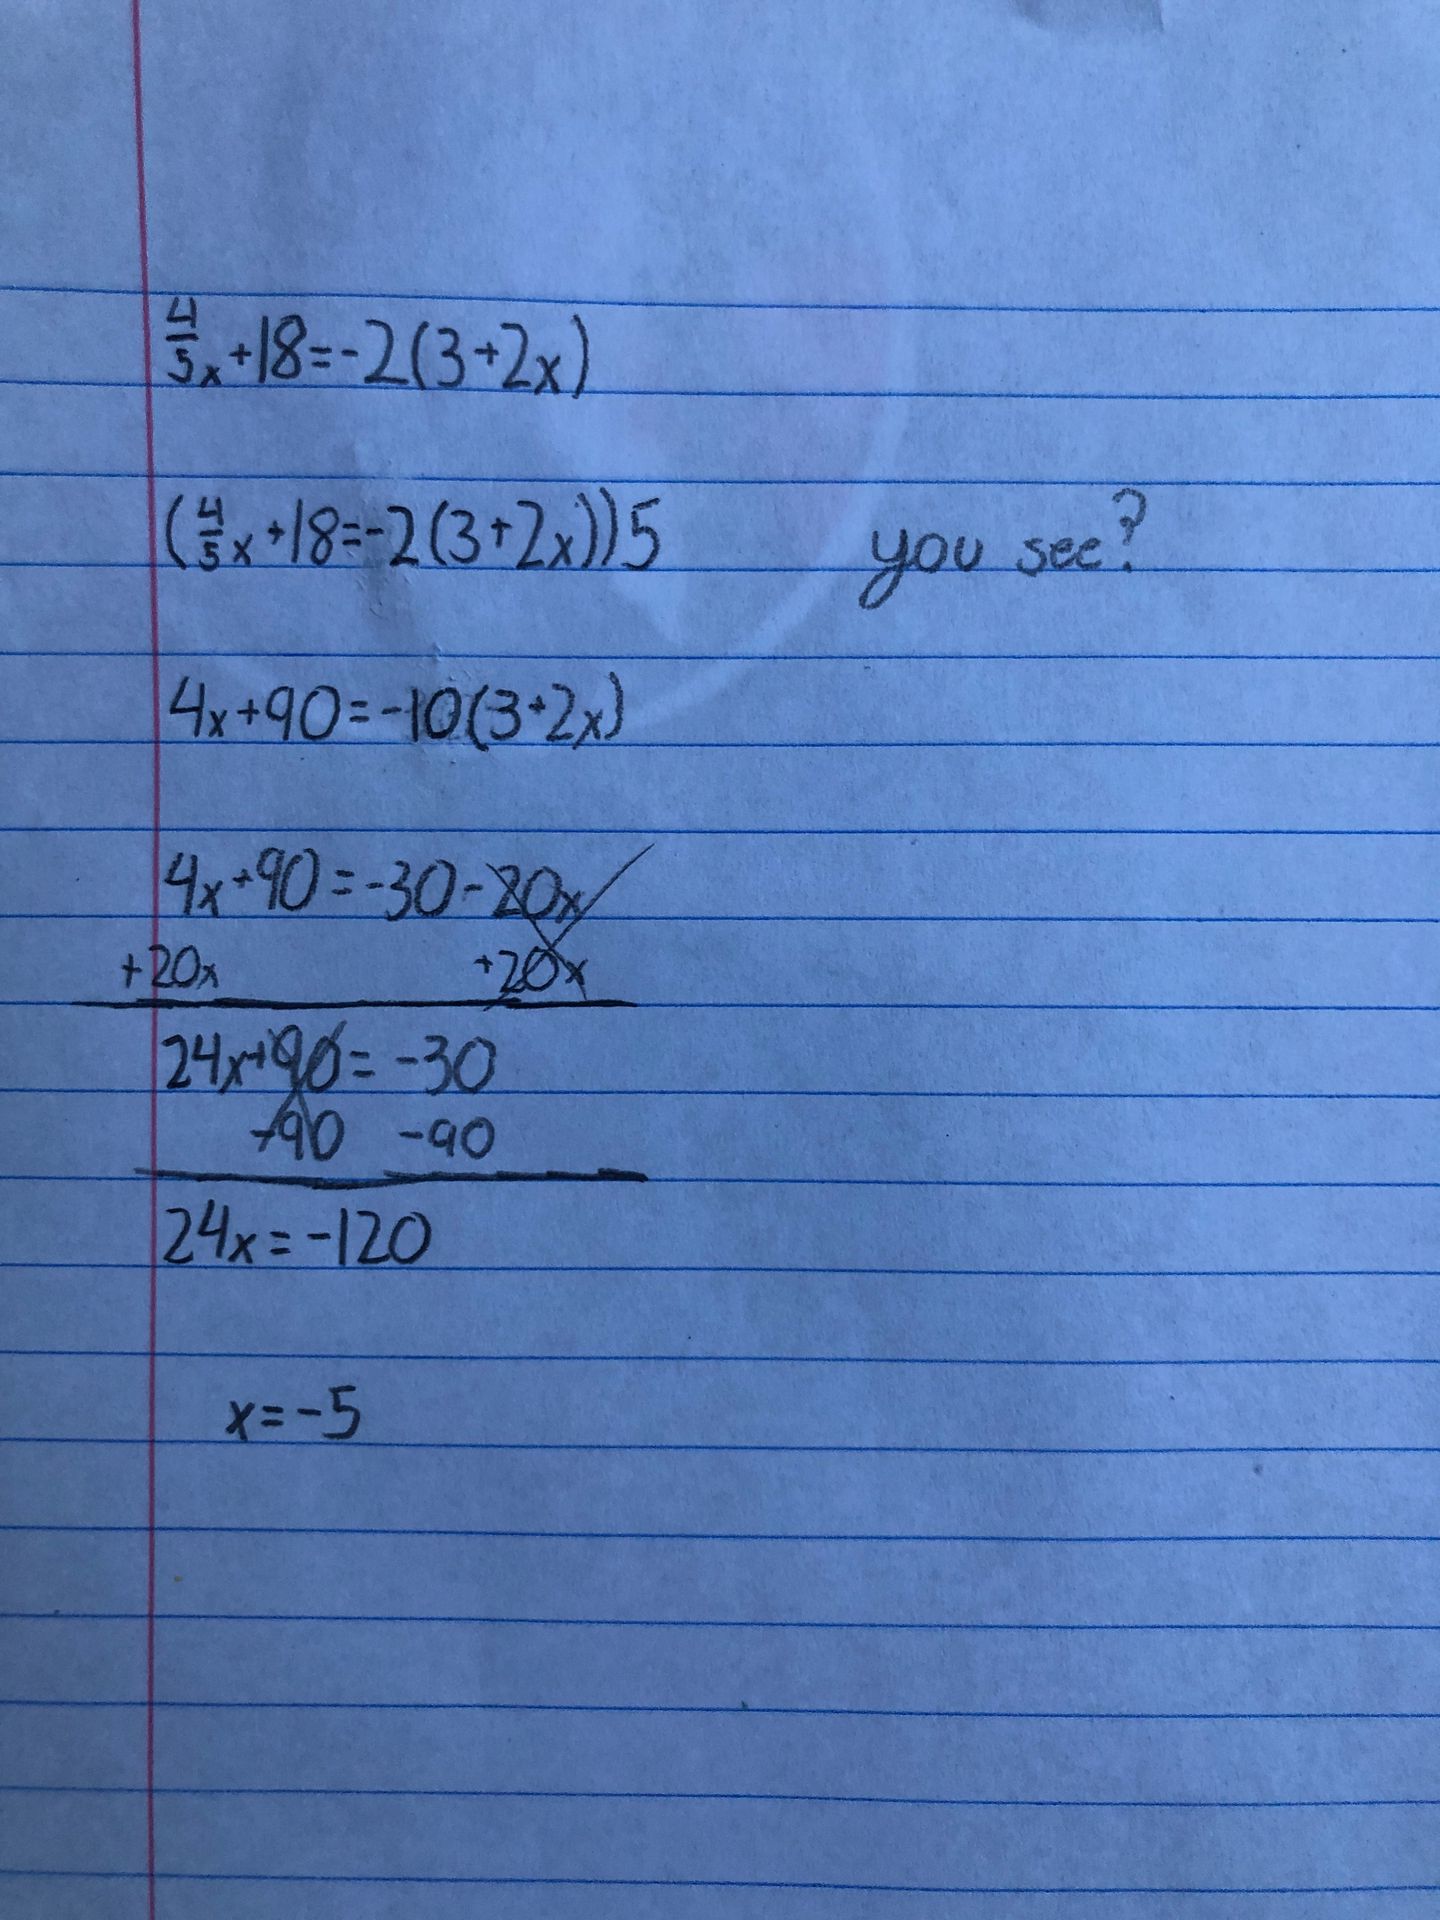 4/5x+18=-2(3+2x)
(4/5x+18=-2(3+2x))5 you see?
4x+90=-10(3+2x)
4x+90=-30-20x
+20x +20x
24x+90=-30
-90 -90
24x=-120
x=-5